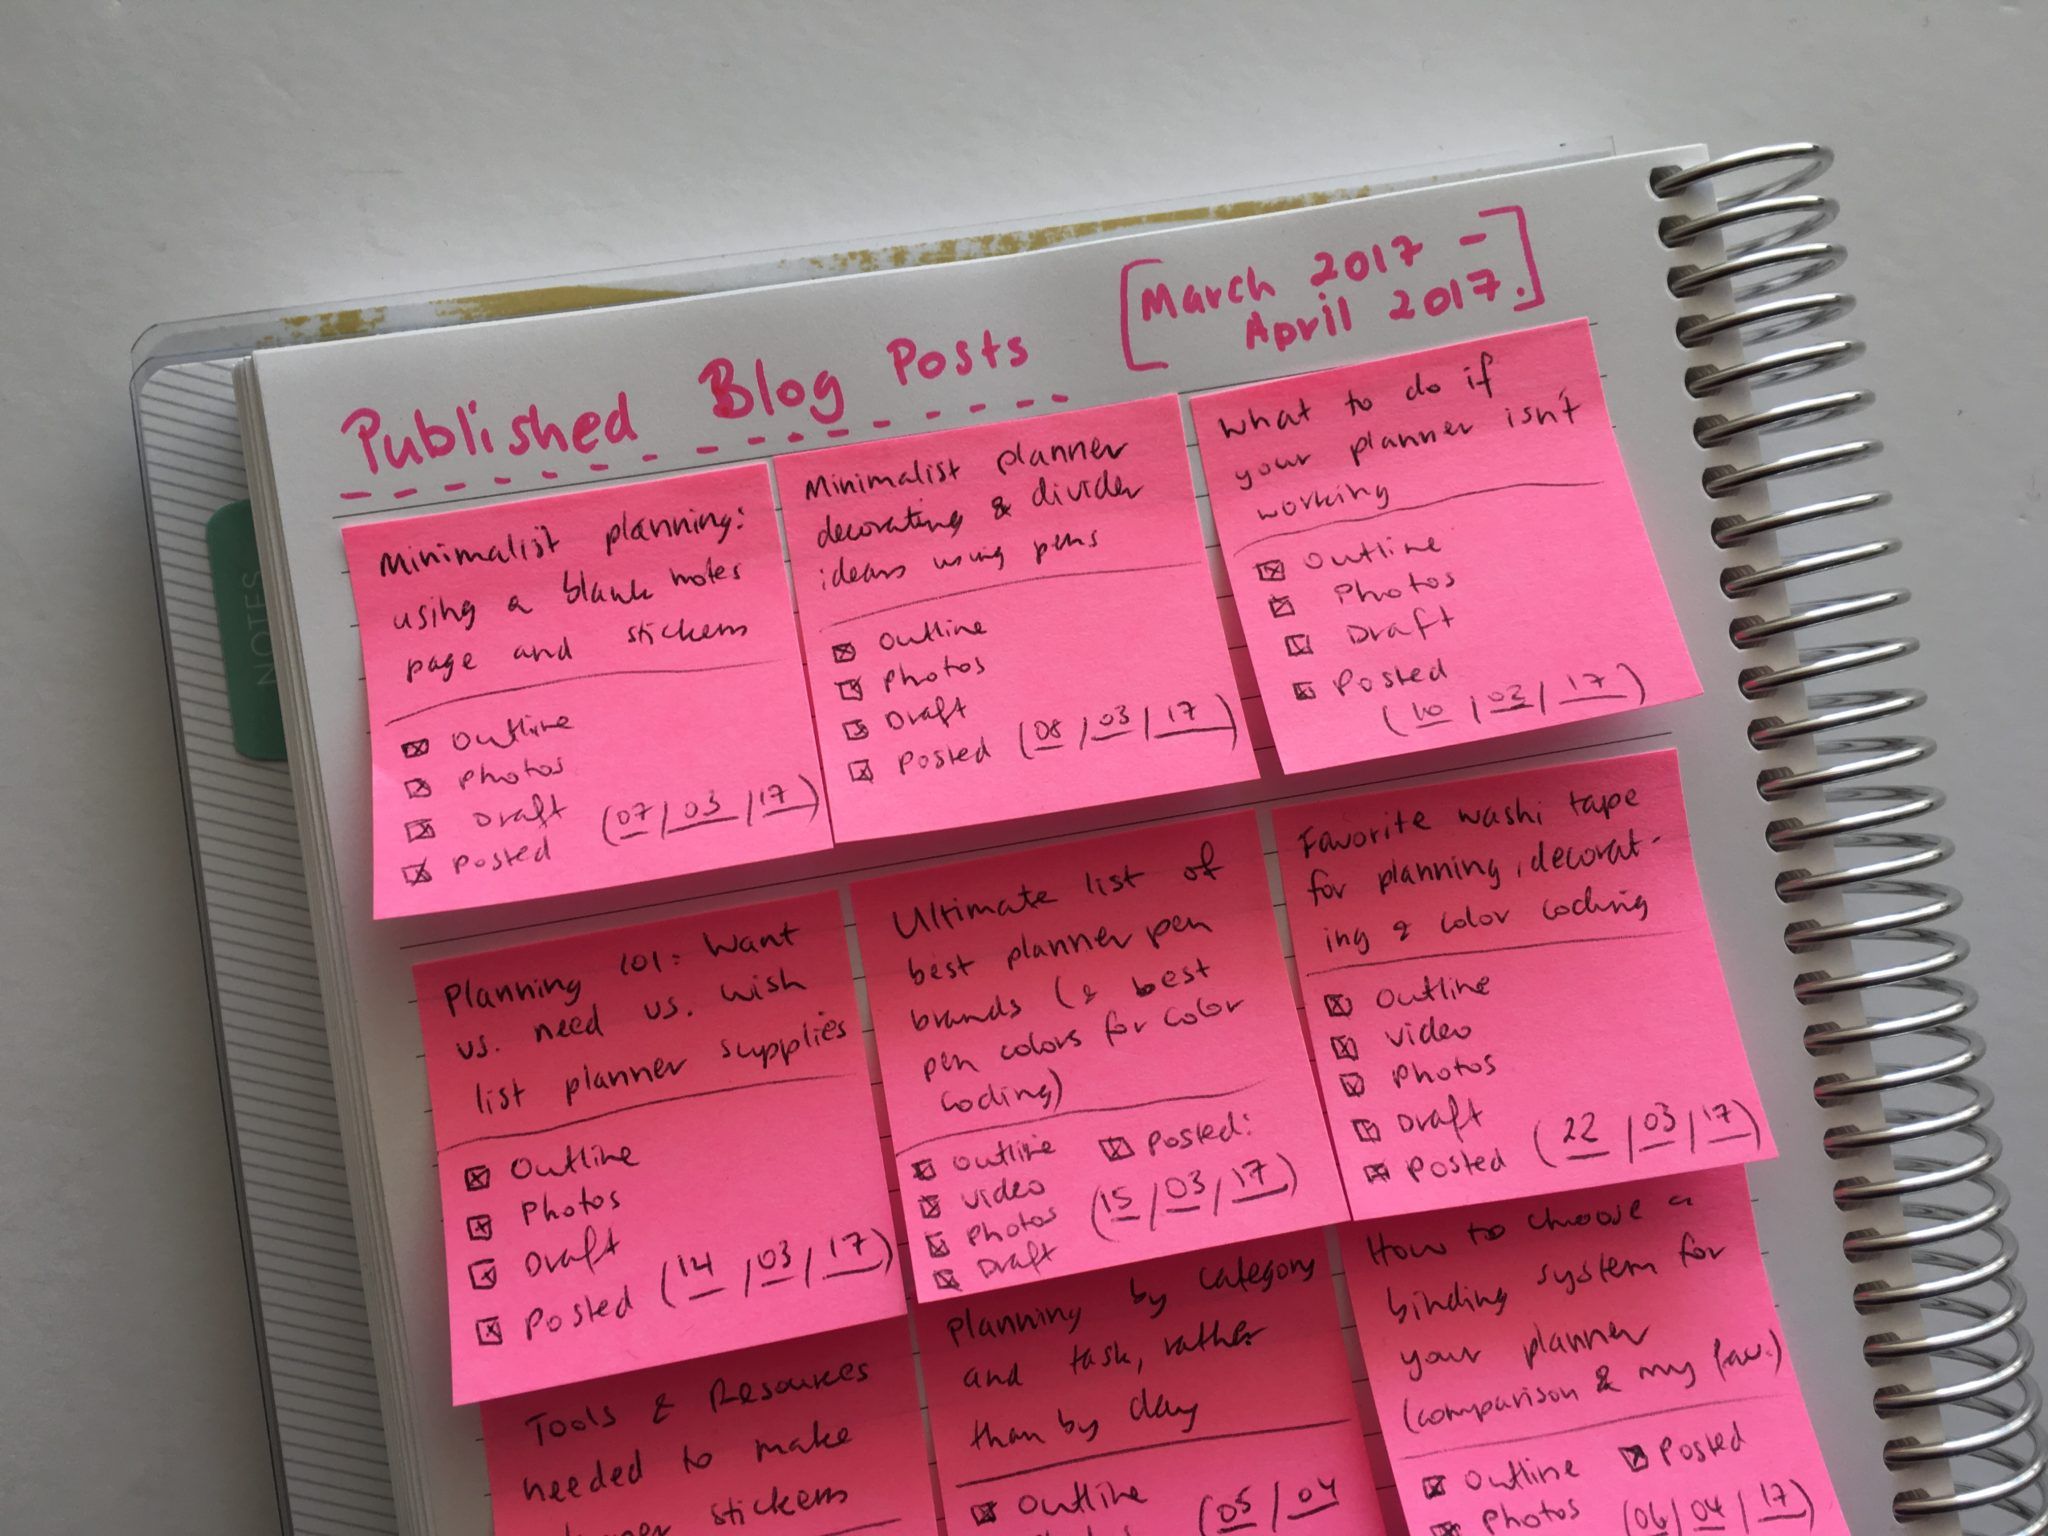 Published Blog Posts
[March 2017 -
April 2017.]
NOTES
Minimalist planning:
using a blank notes
page and stickers
Outline
Photos
Draft (07/03/17)
Posted
Minimalist planner
decorating & divider
ideas using pens
Outline
Photos
Draft
Posted (08/03/17)
What to do if
your planner isn't
working
Outline
Photos
Draft
Posted
(10/03/17)
Planning 101: Want
vs. need vs. wish
list planner supplies
Outline
Photos
Draft
Posted (14/03/17)
Ultimate list of
best planner pen
brands (& best
pen colors for color
coding)
Outline Posted:
Video (15/03/17)
Photos
Draft
Favorite washi tape
for planning, decorat-
ing & color coding
Outline
Video
Photos
Draft
Posted (22/03/17)
Tools & Resources
needed to make
stickers
Planning by category
and task, rather
than by day
Outline (05/04
How to choose a
binding system for
your planner
(comparison & my fav.)
Outline Posted
Photos (06/04/17)